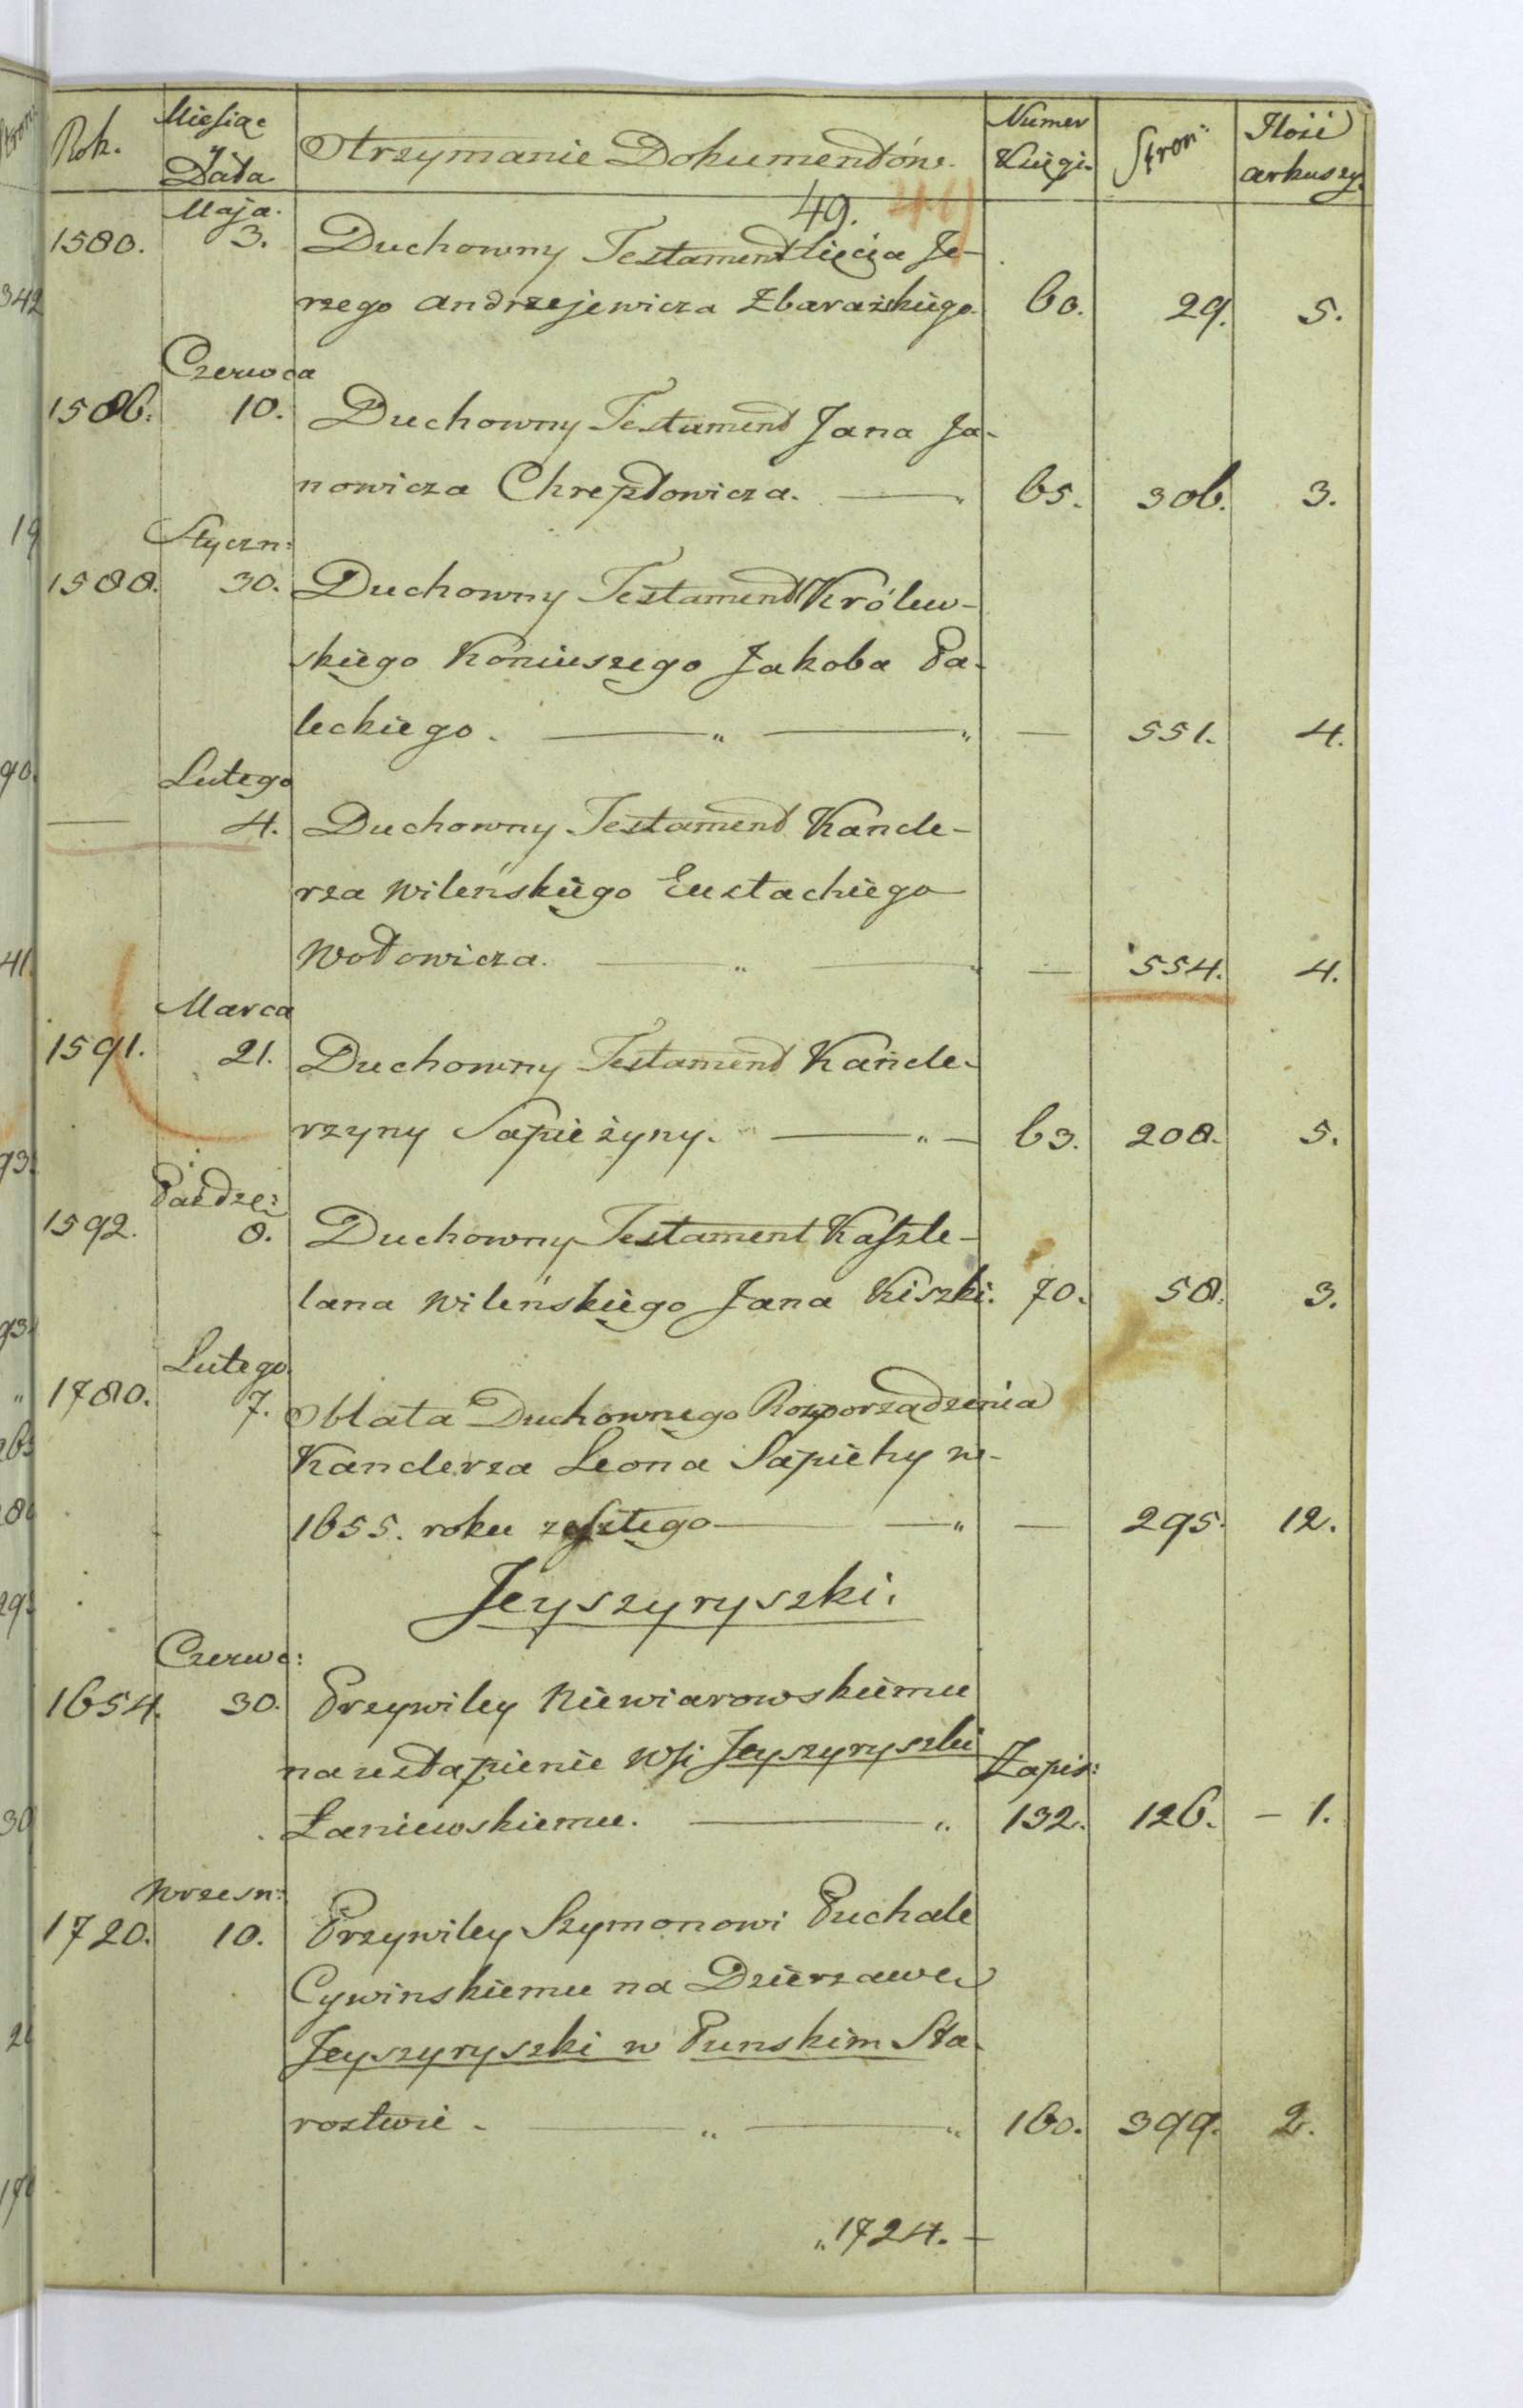 Rok. Miesiąc y Data Otrzymanie Dokumentów. Numer Księgi. Stron: Ilość arkuszy.
49.
Maja.
1580. 3. Duchowny Testament Xięcia Je-
rzego Andrzejewicza Zbarażskiego. 60. 29. 5.
Czerwca
1586. 10. Duchowny Testament Jana Ja-
nowicza Chreptowicza. — 65. 306. 3.
Styczn:
1588. 30. Duchowny Testament Królew-
skiego Koniuszego Jakoba Pa-
leckiego. — „ — „ — 551. 4.
Lutego
— 4. Duchowny Testament Kancle-
rza Wileńskiego Eustachiego
Wołowicza. — „ — „ — 554. 4.
Marca
1591. 21. Duchowny Testament Kancle-
rzyny Sapieżyny. — „ — 63. 208. 5.
Paździe:
1592. 8. Duchowny Testament Kaszte-
lana Wileńskiego Jana Kiszki. 70. 58. 3.
Lutego
1780. 7. Oblata Duchownego Rozporządzenia
Kanclerza Leona Sapiehy w
1655. roku zeszłego — — „ — 295. 12.
Jeyszyryszki.
Czerwc:
1654. 30. Przywiley Niewiarowskiemu
na ustąpienie Wsi Jeyszyryszki Zapis:
Łaniewskiemu. — „ 132. 126. – 1.
Wrzesn:
1720. 10. Przywiley Szymonowi Puchale
Cywinskiemu na Dzierzawe
Jeyszyryszki w Punskim Sta-
rostwie. — „ — „ 160. 399. 2.
„ 1724. –